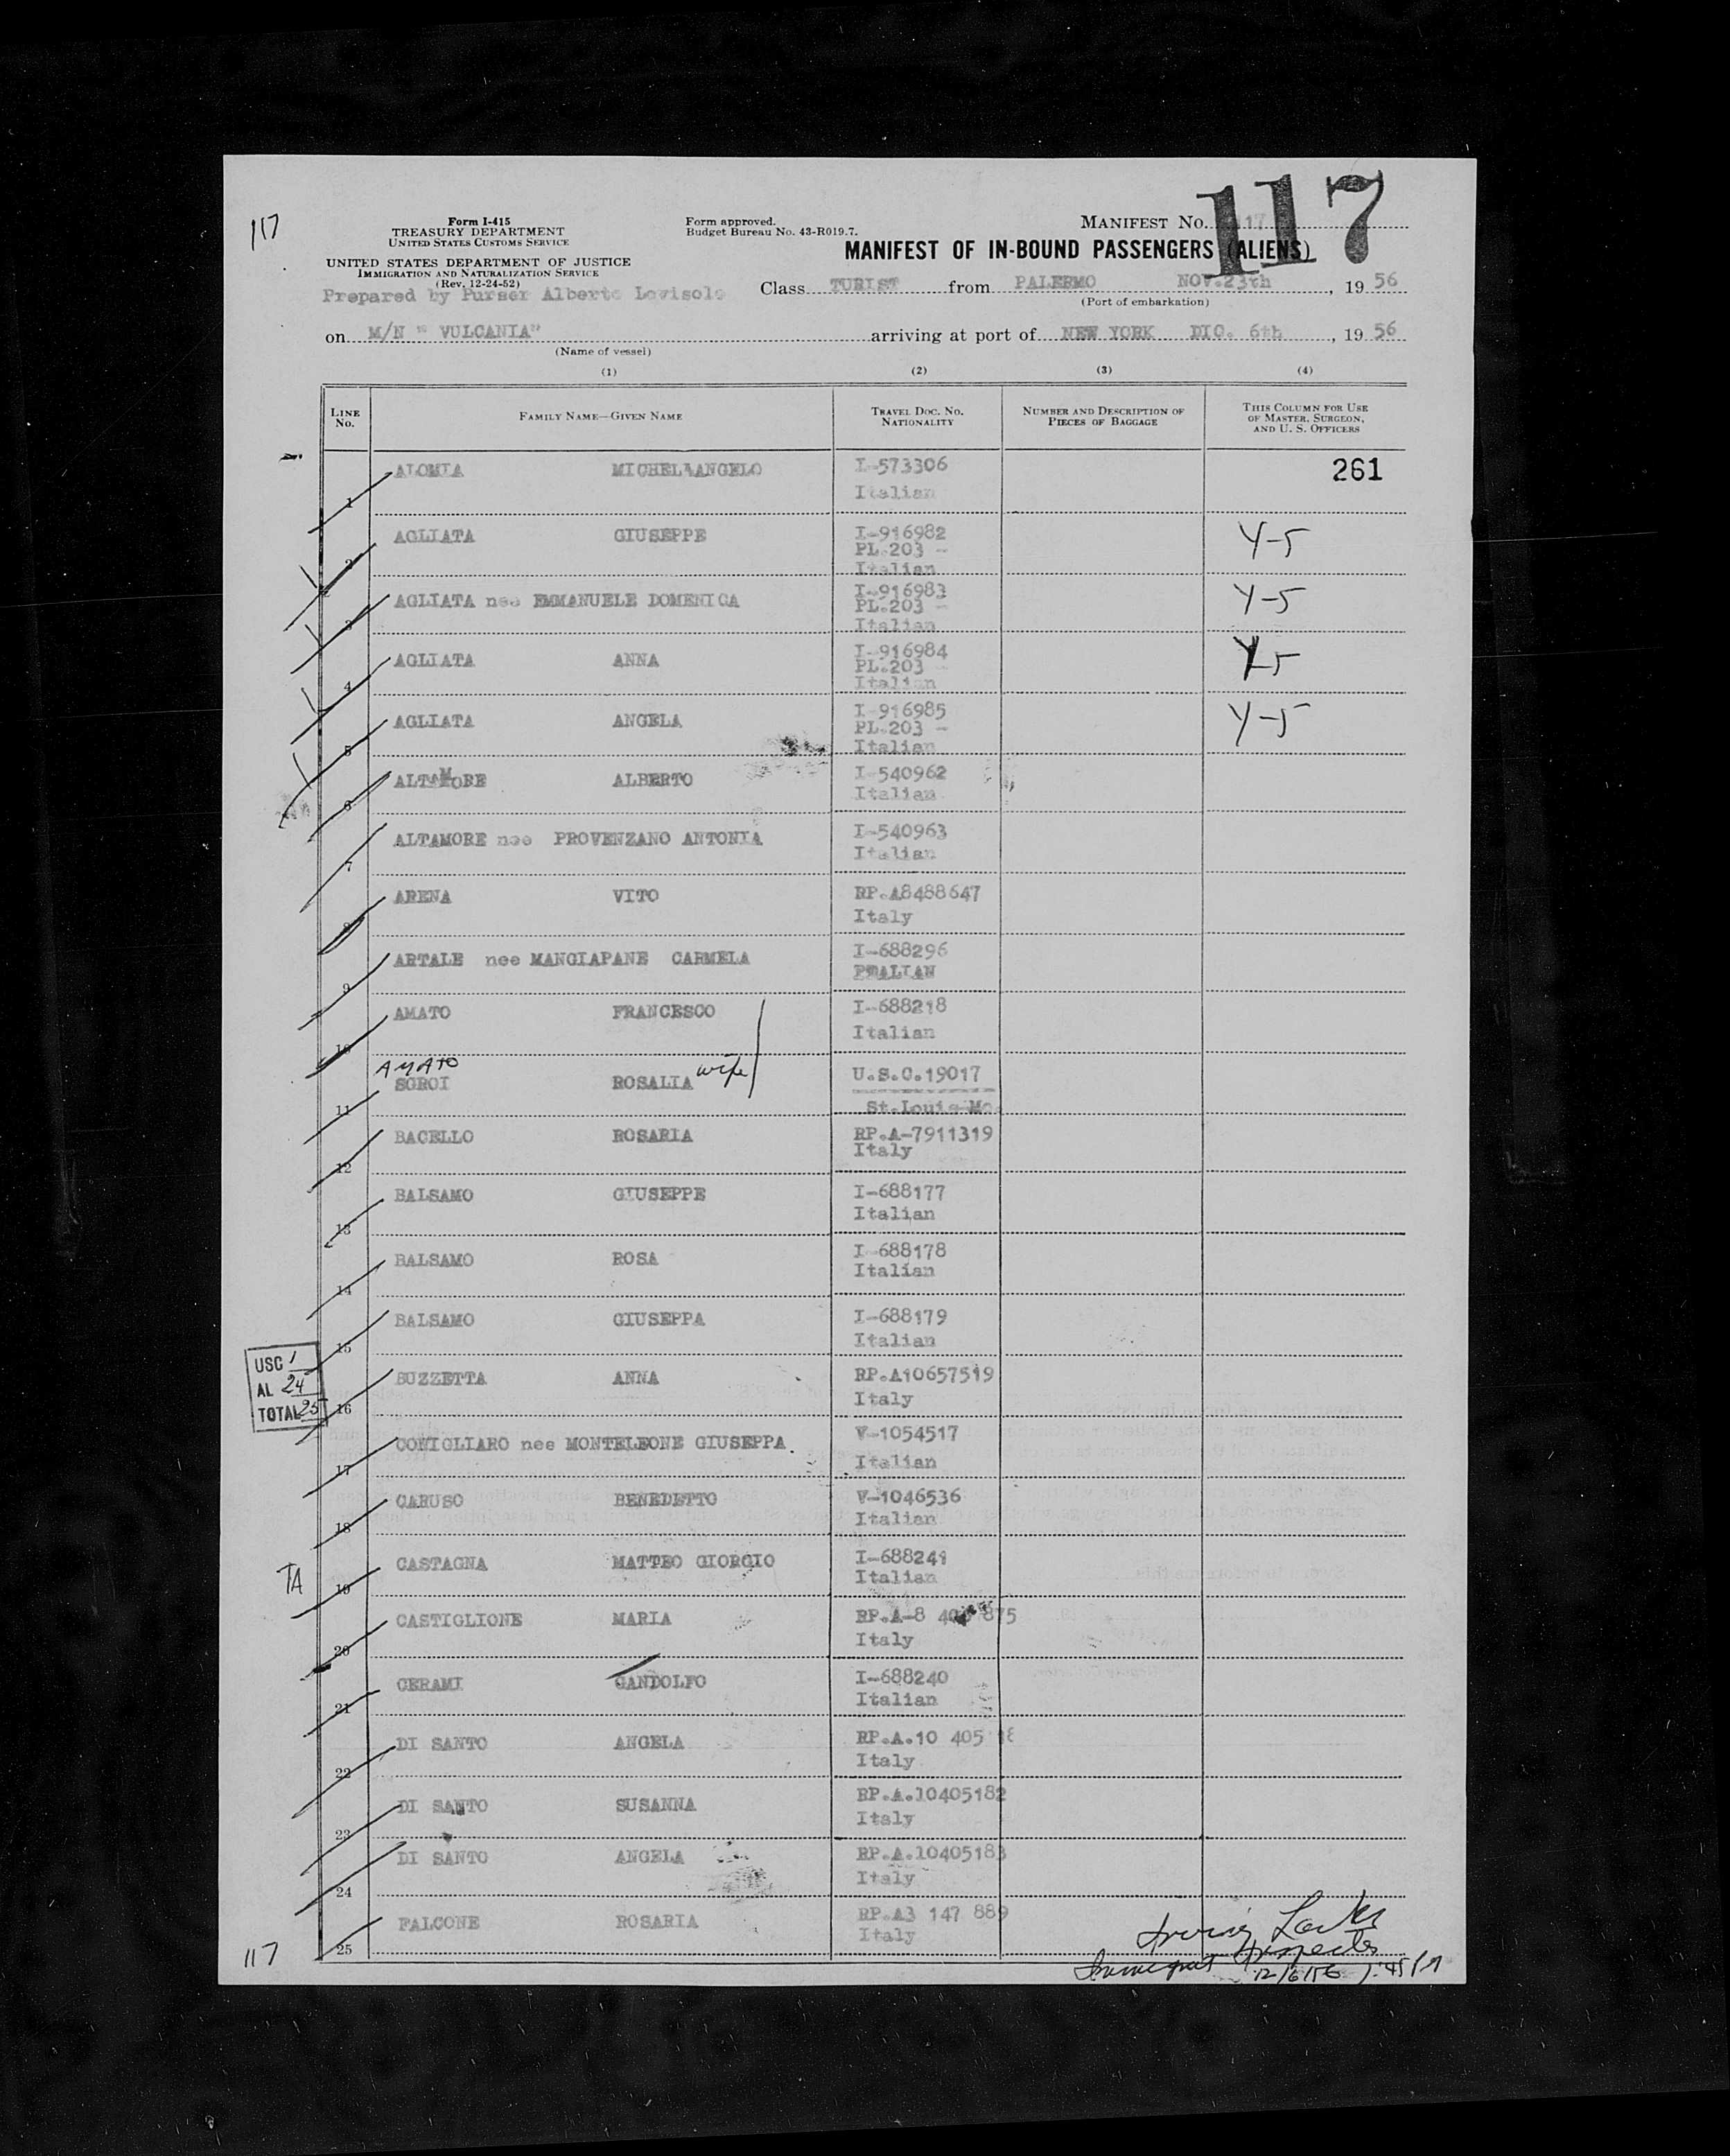 117
Form I-415
TREASURY DEPARTMENT
UNITED STATES CUSTOMS SERVICE
UNITED STATES DEPARTMENT OF JUSTICE
IMMIGRATION AND NATURALIZATION SERVICE
(Rev. 12-24-52)
Prepared by Purser Alberto Lovisolo
Form approved.
Budget Bureau No. 43-R019.7.
MANIFEST NO. 117
117
MANIFEST OF IN-BOUND PASSENGERS (ALIENS)
Class TURIST from PALERMO NOV.23th, 19 56
(Port of embarkation)
on M/N " VULCANIA" arriving at port of NEW YORK DIC. 6th, 19 56
(Name of vessel)
(1) (2) (3) (4)
LINE NO. FAMILY NAME—GIVEN NAME TRAVEL DOC. NO. NATIONALITY NUMBER AND DESCRIPTION OF PIECES OF BAGGAGE THIS COLUMN FOR USE OF MASTER, SURGEON, AND U. S. OFFICERS
1 ALOMIA MICHELANGELO I-573306 261
Italian
2 AGLIATA GIUSEPPE I-916982 Y-5
PL.203 -
Italian
3 AGLIATA nee EMMANUELE DOMENICA I-916983 Y-5
PL.203 -
Italian
4 AGLIATA ANNA I-916984 Y5
PL.203
Italian
5 AGLIATA ANGELA I-916985 Y-5
PL.203 -
Italian
6 ALTAMORE ALBERTO I-540962
Italian
7 ALTAMORE nee PROVENZANO ANTONIA I-540963
Italian
8 ARENA VITO RP.A8488647
Italy
9 ARTALE nee MANGIAPANE CARMELA I-688296
10 AMATO FRANCESCO I-688218
Italian
AMATO
11 SGROI ROSALIA wife U.S.C.19017
St.Louis-Mo.
12 BACELLO ROSARIA RP.A-7911319
Italy
13 BALSAMO GIUSEPPE I-688177
Italian
14 BALSAMO ROSA I-688178
Italian
15 BALSAMO GIUSEPPA I-688179
Italian
USC 1
AL 24
TOTAL 25
16 BUZZETTA ANNA RP.A10657519
Italy
17 CONIGLIARO nee MONTELEONE GIUSEPPA V-1054517
Italian
18 CARUSO BENEDETTO V-1046536
Italian
TA 19 CASTAGNA MATTEO GIORGIO I-688241
Italian
20 CASTIGLIONE MARIA RP.A-8 875
Italy
21 CERAMI GANDOLFO I-688240
Italian
22 DI SANTO ANGELA RP.A.10 405
Italy
23 DI SANTO SUSANNA RP.A.10405182
Italy
24 DI SANTO ANGELA RP.A.10405183
Italy
25 FALCONE ROSARIA RP.A3 147 889
Italy
117
Irving
Immigrant Inspector
12/6/56